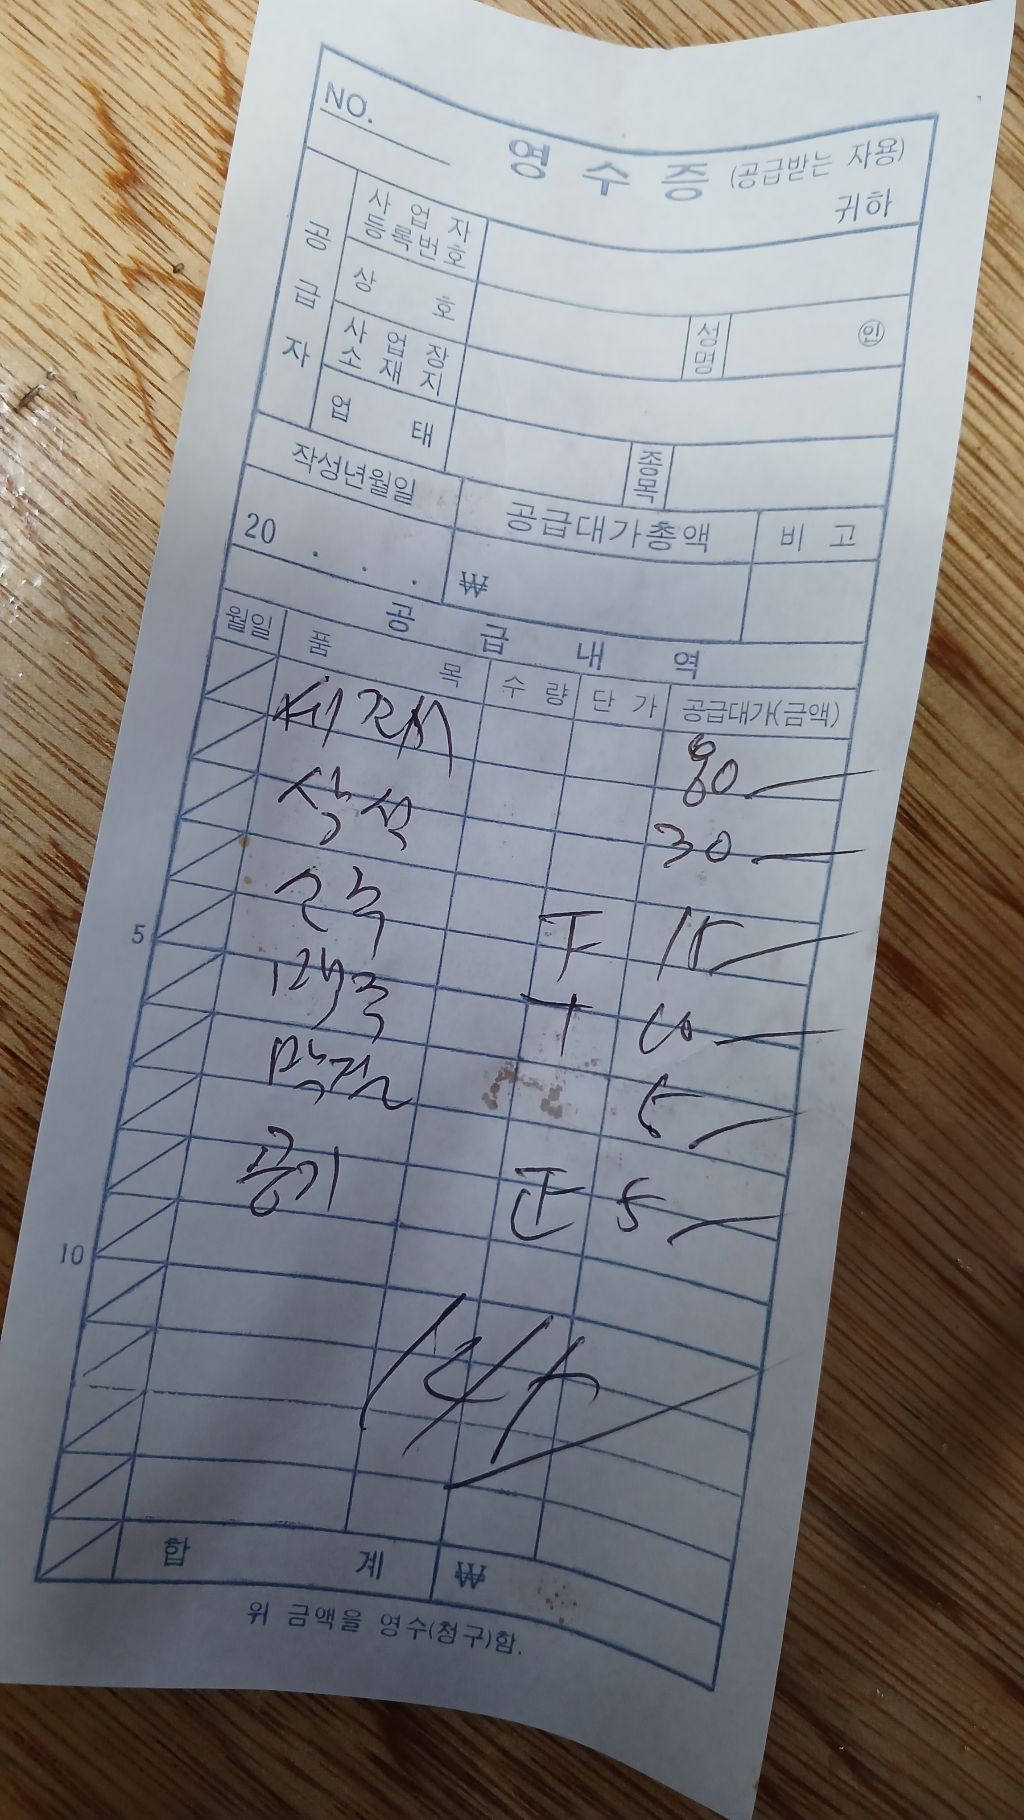 NO.
영 수 증 (공급받는 자용)
귀하
공급자
사업자등록번호
상 호
성명
인
사업장소재지
업 태
종목
작성년월일
공급대가총액
비 고
20 . . .
₩
공 급 내 역
월일 품 목 수 량 단 가 공급대가(금액)
80
상석 30
소주 T 15
맥주 T 10
막걸 5
5
공기 5
10
145
합 계 ₩
위 금액을 영수(청구)함.